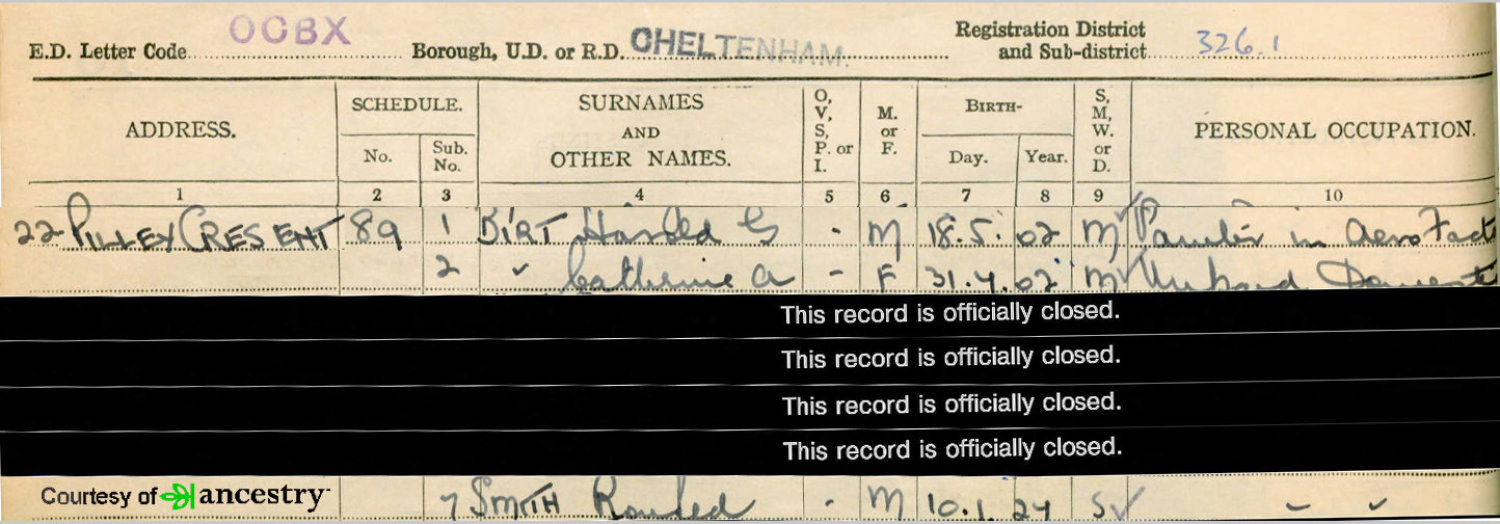 E.D. Letter Code OCBX Borough, U.D. or R.D. CHELTENHAM. Registration District and Sub-district 326.1
ADDRESS. SCHEDULE. No. Sub. No. SURNAMES AND OTHER NAMES. O, V, S, P. or I. M. or F. BIRTH- Day. Year. S, M, W. or D. PERSONAL OCCUPATION.
1 2 3 4 5 6 7 8 9 10
22 PILLEY CRESENT 89 1 BIRT Harold G - M 18.5. 02 M ✓ Painter in Aero Fact
2 ✓ Catherine A - F 31.4.02 M ✓ Unpaid Domest
This record is officially closed.
This record is officially closed.
This record is officially closed.
This record is officially closed.
Courtesy of ancestry 7 SMITH Ronald - M 10.1.24 S ✓ - ✓